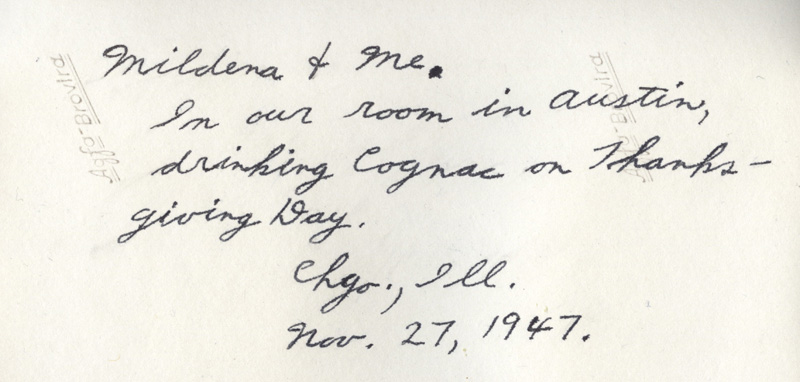 Mildena & Me.
In our room in Austin,
drinking Cognac on Thanks-
giving Day.
Chgo., Ill.
Nov. 27, 1947.
Agfa-Brovira
Agfa-Brovira